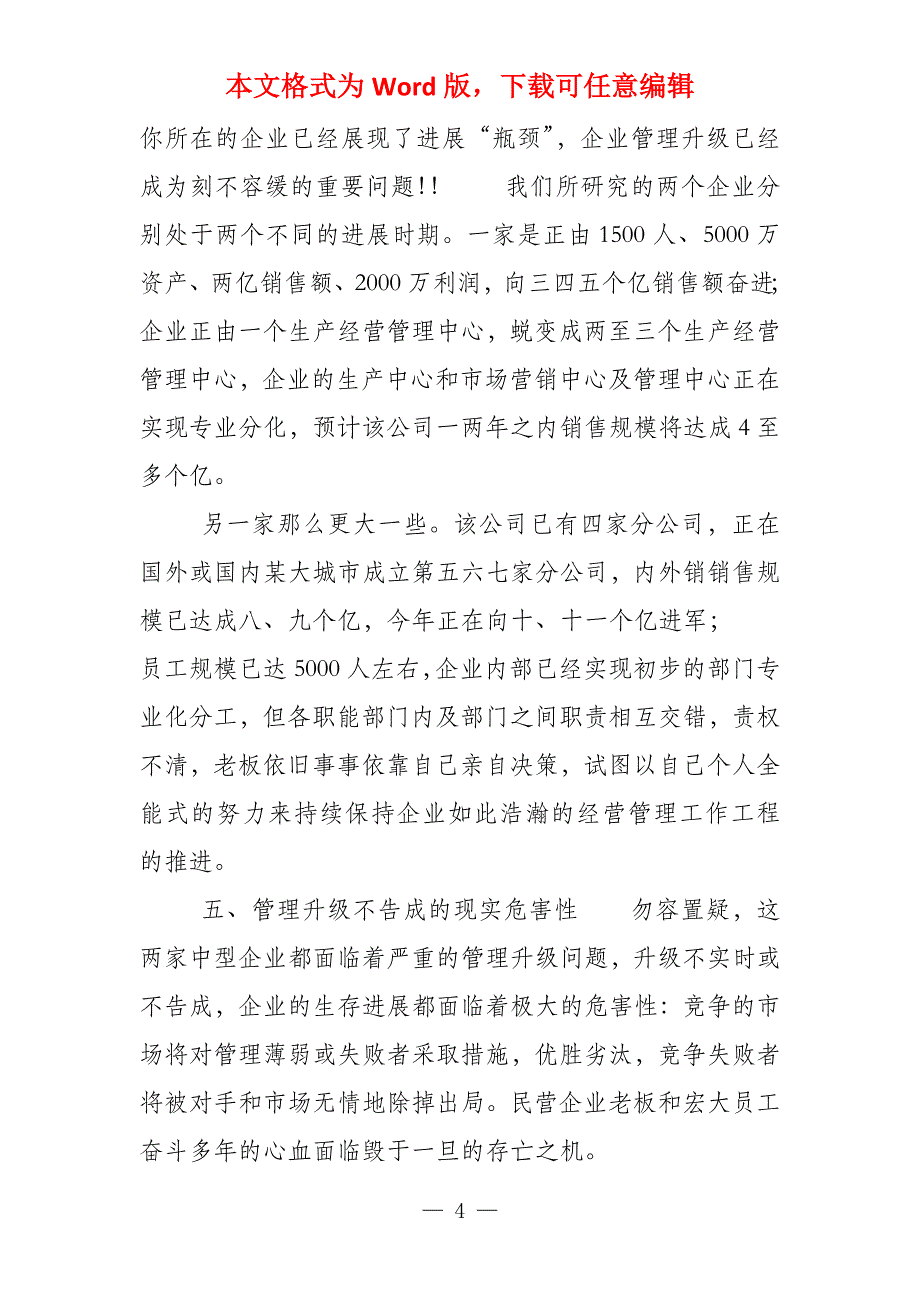 本文格式为 Word 版，下载可任意编辑
你所在的企业已经展现了进展“瓶颈”，企业管理升级已经
成为刻不容缓的重要问题!! 我们所研究的两个企业分
别处于两个不同的进展时期。一家是正由 1500 人、5000 万
资产、两亿销售额、2000 万利润，向三四五个亿销售额奋进;
企业正由一个生产经营管理中心，蜕变成两至三个生产经营
管理中心，企业的生产中心和市场营销中心及管理中心正在
实现专业分化，预计该公司一两年之内销售规模将达成 4 至
多个亿。
另一家那么更大一些。该公司已有四家分公司，正在
国外或国内某大城市成立第五六七家分公司，内外销销售规
模已达成八、九个亿，今年正在向十、十一个亿进军;
员工规模已达 5000 人左右，企业内部已经实现初步的部门专
业化分工，但各职能部门内及部门之间职责相互交错，责权
不清，老板依旧事事依靠自己亲自决策，试图以自己个人全
能式的努力来持续保持企业如此浩瀚的经营管理工作工程
的推进。
五、管理升级不告成的现实危害性 勿容置疑，这
两家中型企业都面临着严重的管理升级问题，升级不实时或
不告成，企业的生存进展都面临着极大的危害性：竞争的市
场将对管理薄弱或失败者采取措施，优胜劣汰，竞争失败者
将被对手和市场无情地除掉出局。民营企业老板和宏大员工
奋斗多年的心血面临毁于一旦的存亡之机。
— 4 —